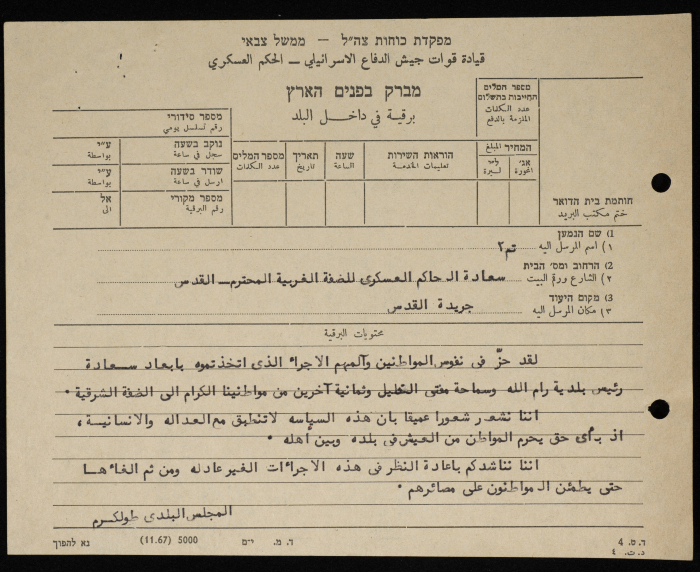 מפקדת כוחות צה״ל – ממשל צבאי
قيادة قوات جيش الدفاع الاسرائيلي – الحكم العسكري
מברק בפנים הארץ
برقية في داخل البلد
מספר המלים החייבות בתשלום
عدد الكلمات الملزمة بالدفع
מספר סידורי
رقم تسلسل يومي
נוקב בשעה
سجل في ساعة
ע״י
بواسطة
שודר בשעה
ارسل في ساعة
ע״י
بواسطة
מספר מקורי
رقم البرقية
אל
الى
מספר המלים
عدد الكلمات
תאריך
تاريخ
שעה
الساعة
הוראות השירות
تعليمات الخدمة
המחיר المبلغ
ל״י
ليرة
אג׳
אגורة
חותמת בית הדואר
ختم مكتب البريد
1) שם הנמען
١) اسم المرسل اليه تم٢
2) הרחוב ומס׳ הבית
٢) الشارع ورقم البيت سعادة الحاكم العسكرى للضفة الغربية المحترم – القدس
3) מקום היעוד
٣) مكان المرسل اليه جريدة القدس
محتويات البرقية
لقد حزّ فى نفوس المواطنين وآلمهم الاجراء الذى اتخذتموه بابعاد سعادة
رئيس بلدية رام الله وسماحة مفتى الخليل وثمانية آخرين من مواطنينا الكرام الى الضفة الشرقية .
اننا نشعر شعورا عميقا بان هذه السياسه لاتنطبق مع العداله والانسانية ،
اذ بأى حق يحرم المواطن من العيش فى بلده وبين أهله .
اننا نناشدكم باعادة النظر فى هذه الاجرائات الغير عادله ومن ثم الغاءها
حتى يطمئن المواطنون على مصائرهم .
المجلس البلدى طولكرم
ד.ס. 4
د.ت. ٤
ד.מ. י־ם
5000 (11.67)
נא להפוך